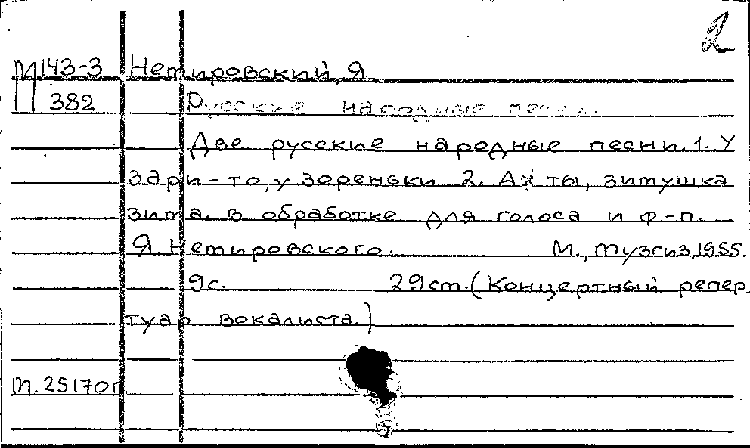 2
М143-3 Нетировский, Я
382 Русские народные песни.
Две русские народные песни. 1. У
зари-то, у зореньки 2. Ах ты, зимушка
зима. в обработке для голоса и ф-п.
Я Нетировского. М., Музгиз, 1955.
9с. 29см. (Концертный репер
туар вокалиста.)
М.25170г